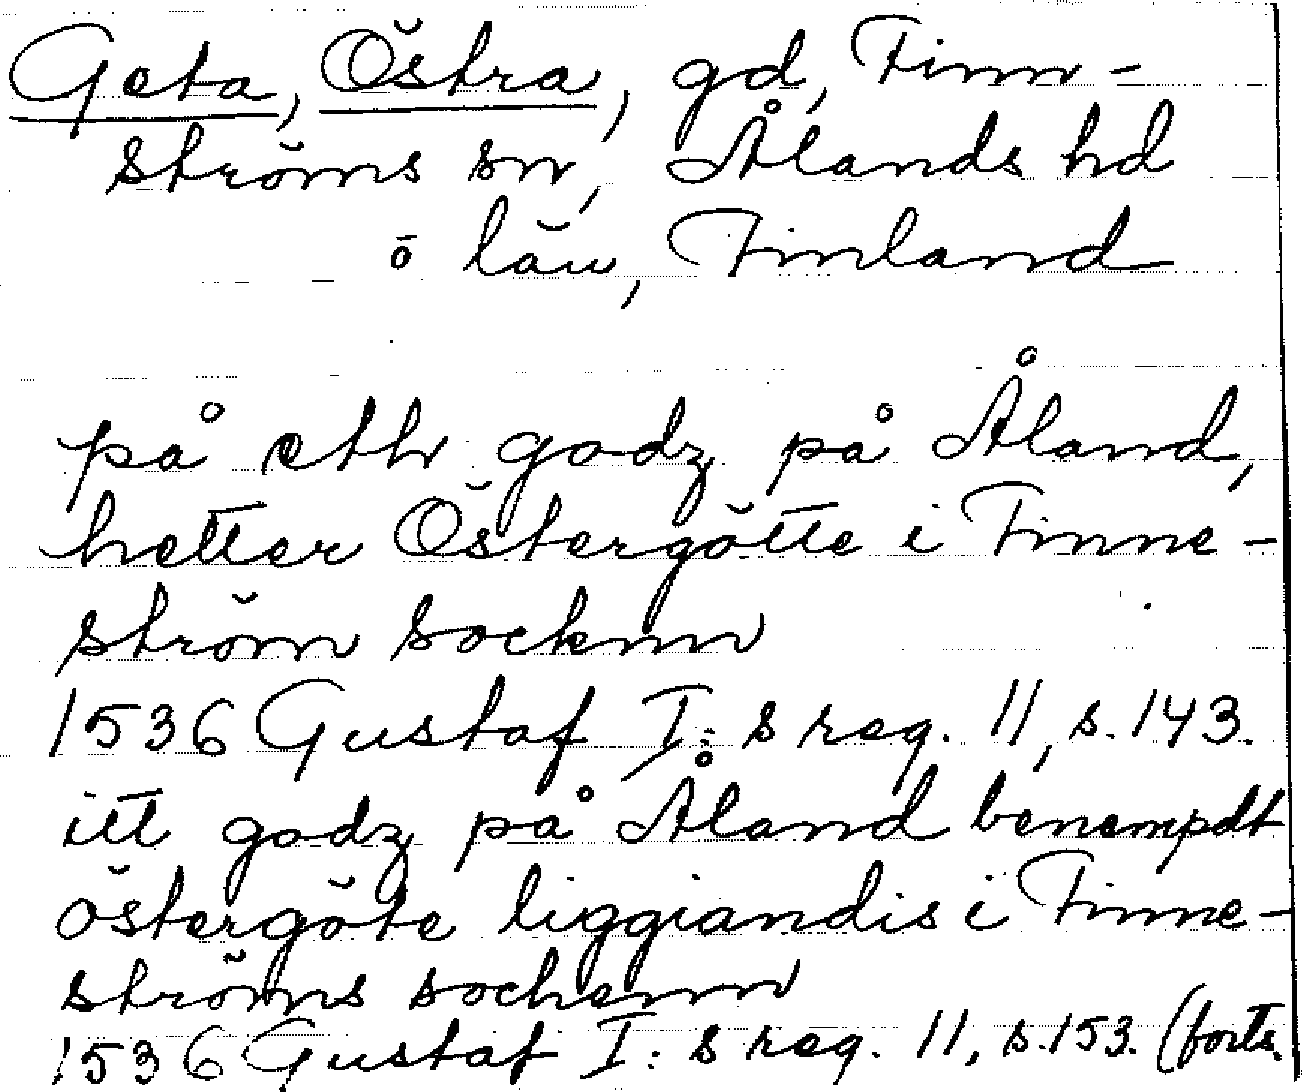 Geta, Östra, gd, Finn-
ströms sn, Ålands hd
o län, Finland
på ett godz på Åland,
hetter Östergötte i Finne-
ström socknn
1536 Gustaf I:s reg. 11, s. 143.
itt godz på Åland benempdt
östergöte liggiandis i Finne-
ströms sochenn
1536 Gustaf I:s reg. 11, s. 153. (forts.